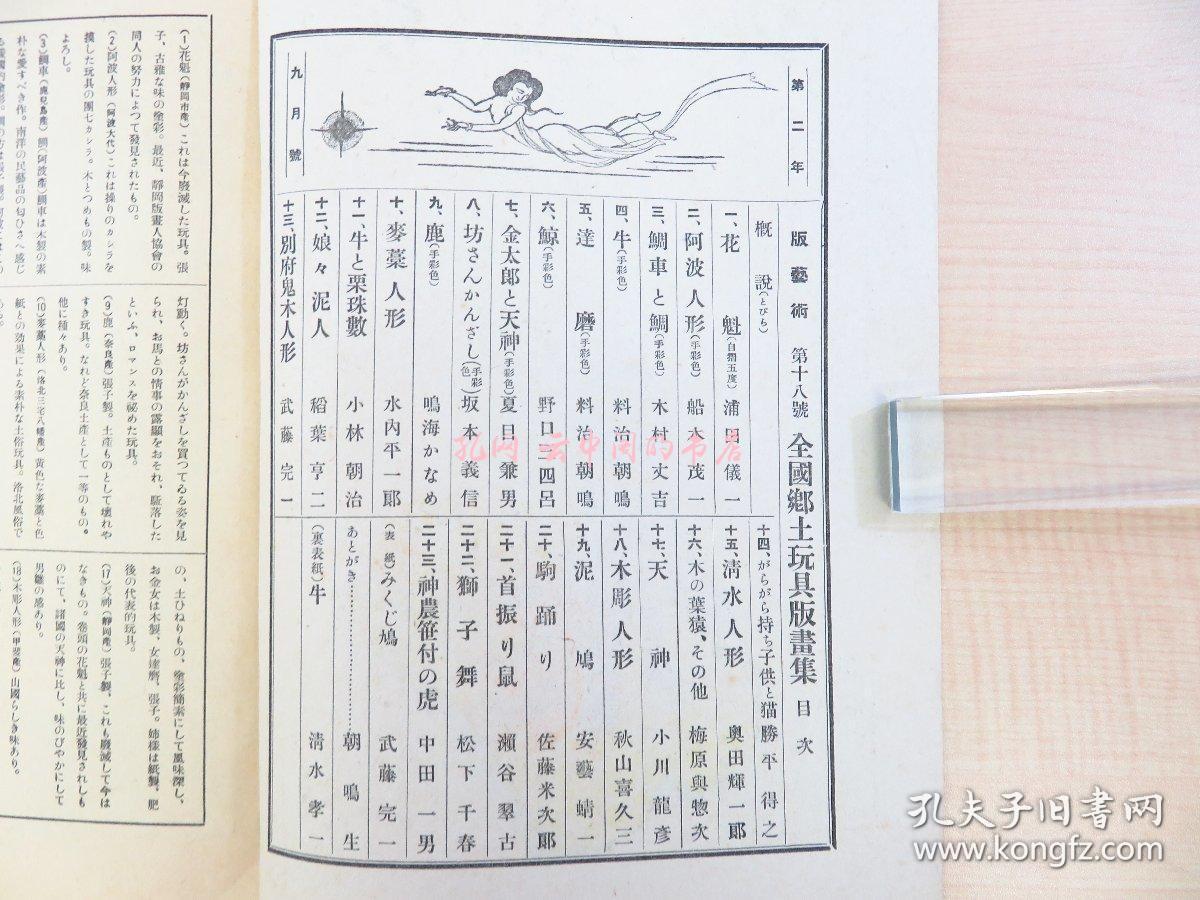 第二年
九月號
版藝術 第十八號 全國鄕土玩具版畫集 目次
概說(とびら)
一、花魁(自摺五度) 浦田儀一
二、阿波人形(手彩色) 船木茂一
三、鯛車と鯛(手彩色) 木村丈吉
四、牛(手彩色) 料治朝鳴
五、達磨(手彩色) 料治朝鳴
六、鯨(手彩色) 野口二四呂
七、金太郎と天神(手彩色) 夏目兼男
八、坊さんかんざし(手彩色) 坂本義信
九、鹿(手彩色) 鳴海かなめ
十、麥藁人形 水內平一郞
十一、牛と栗珠數 小林朝治
十二、娘々泥人 稻葉亨二
十三、別府鬼木人形 武藤完一
十四、がらがら持ち子供と猫 勝平得之
十五、淸水人形 奧田輝一郞
十六、木の葉猿、その他 梅原與惣次
十七、天神 小川龍彥
十八、木彫人形 秋山喜久三
十九、泥鳩 安藝蜻一
二十、駒踊り 佐藤米次郞
二十一、首振り鼠 瀨谷翠古
二十二、獅子舞 松下千春
二十三、神農笹付の虎 中田一男
(表紙)みくじ鳩 武藤完一
あとがき……………………朝鳴生
(裏表紙)牛 淸水孝一
(1)花魁(靜岡市產)これは今廢滅した玩具。張
子、古雅な味の塗彩。最近、靜岡版畫人協會の
同人の努力によつて發見されたもの。
(2)阿波人形(阿波大代)これは操りのカシラを
摸した玩具の團七カシラ。木とつめもの製。味
よろし。
(3)鯛車(鹿兒島產)鯛(阿波產)鯛車は木製の素
朴な愛すべき作。南洋の民藝品の匂ひさへ感じ
灯動く。坊さんがかんざしを買つてゐる姿を見
られ、お馬との情事の露顯をおそれ、駈落した
といふ、ロマンスを祕めた玩具。
(9)鹿(奈良產)張子製。土產ものとして壞れや
すき玩具。なれど奈良土產として一等のもの。
他に種々あり。
(10)麥藁人形(洛北三宅八幡產)黃色た麥藁と色
紙との効果による素朴な土俗玩具。洛北風俗で
の、土ひねりもの、塗彩簡素にして風味深し、
お金女は木製、女達磨、張子。姉樣は紙製、肥
後の代表的玩具。
(17)天神(靜岡產)張子製、これも廢滅して今は
なきもの。卷頭の花魁と共に最近發見されしも
のにて、諸國の天神に比し、味のびやかにして
男雛の感あり。
(18)木彫人形(甲斐產)山國らしき味あり。
孔网 云中阁的书店
孔夫子旧书网
www.kongfz.com